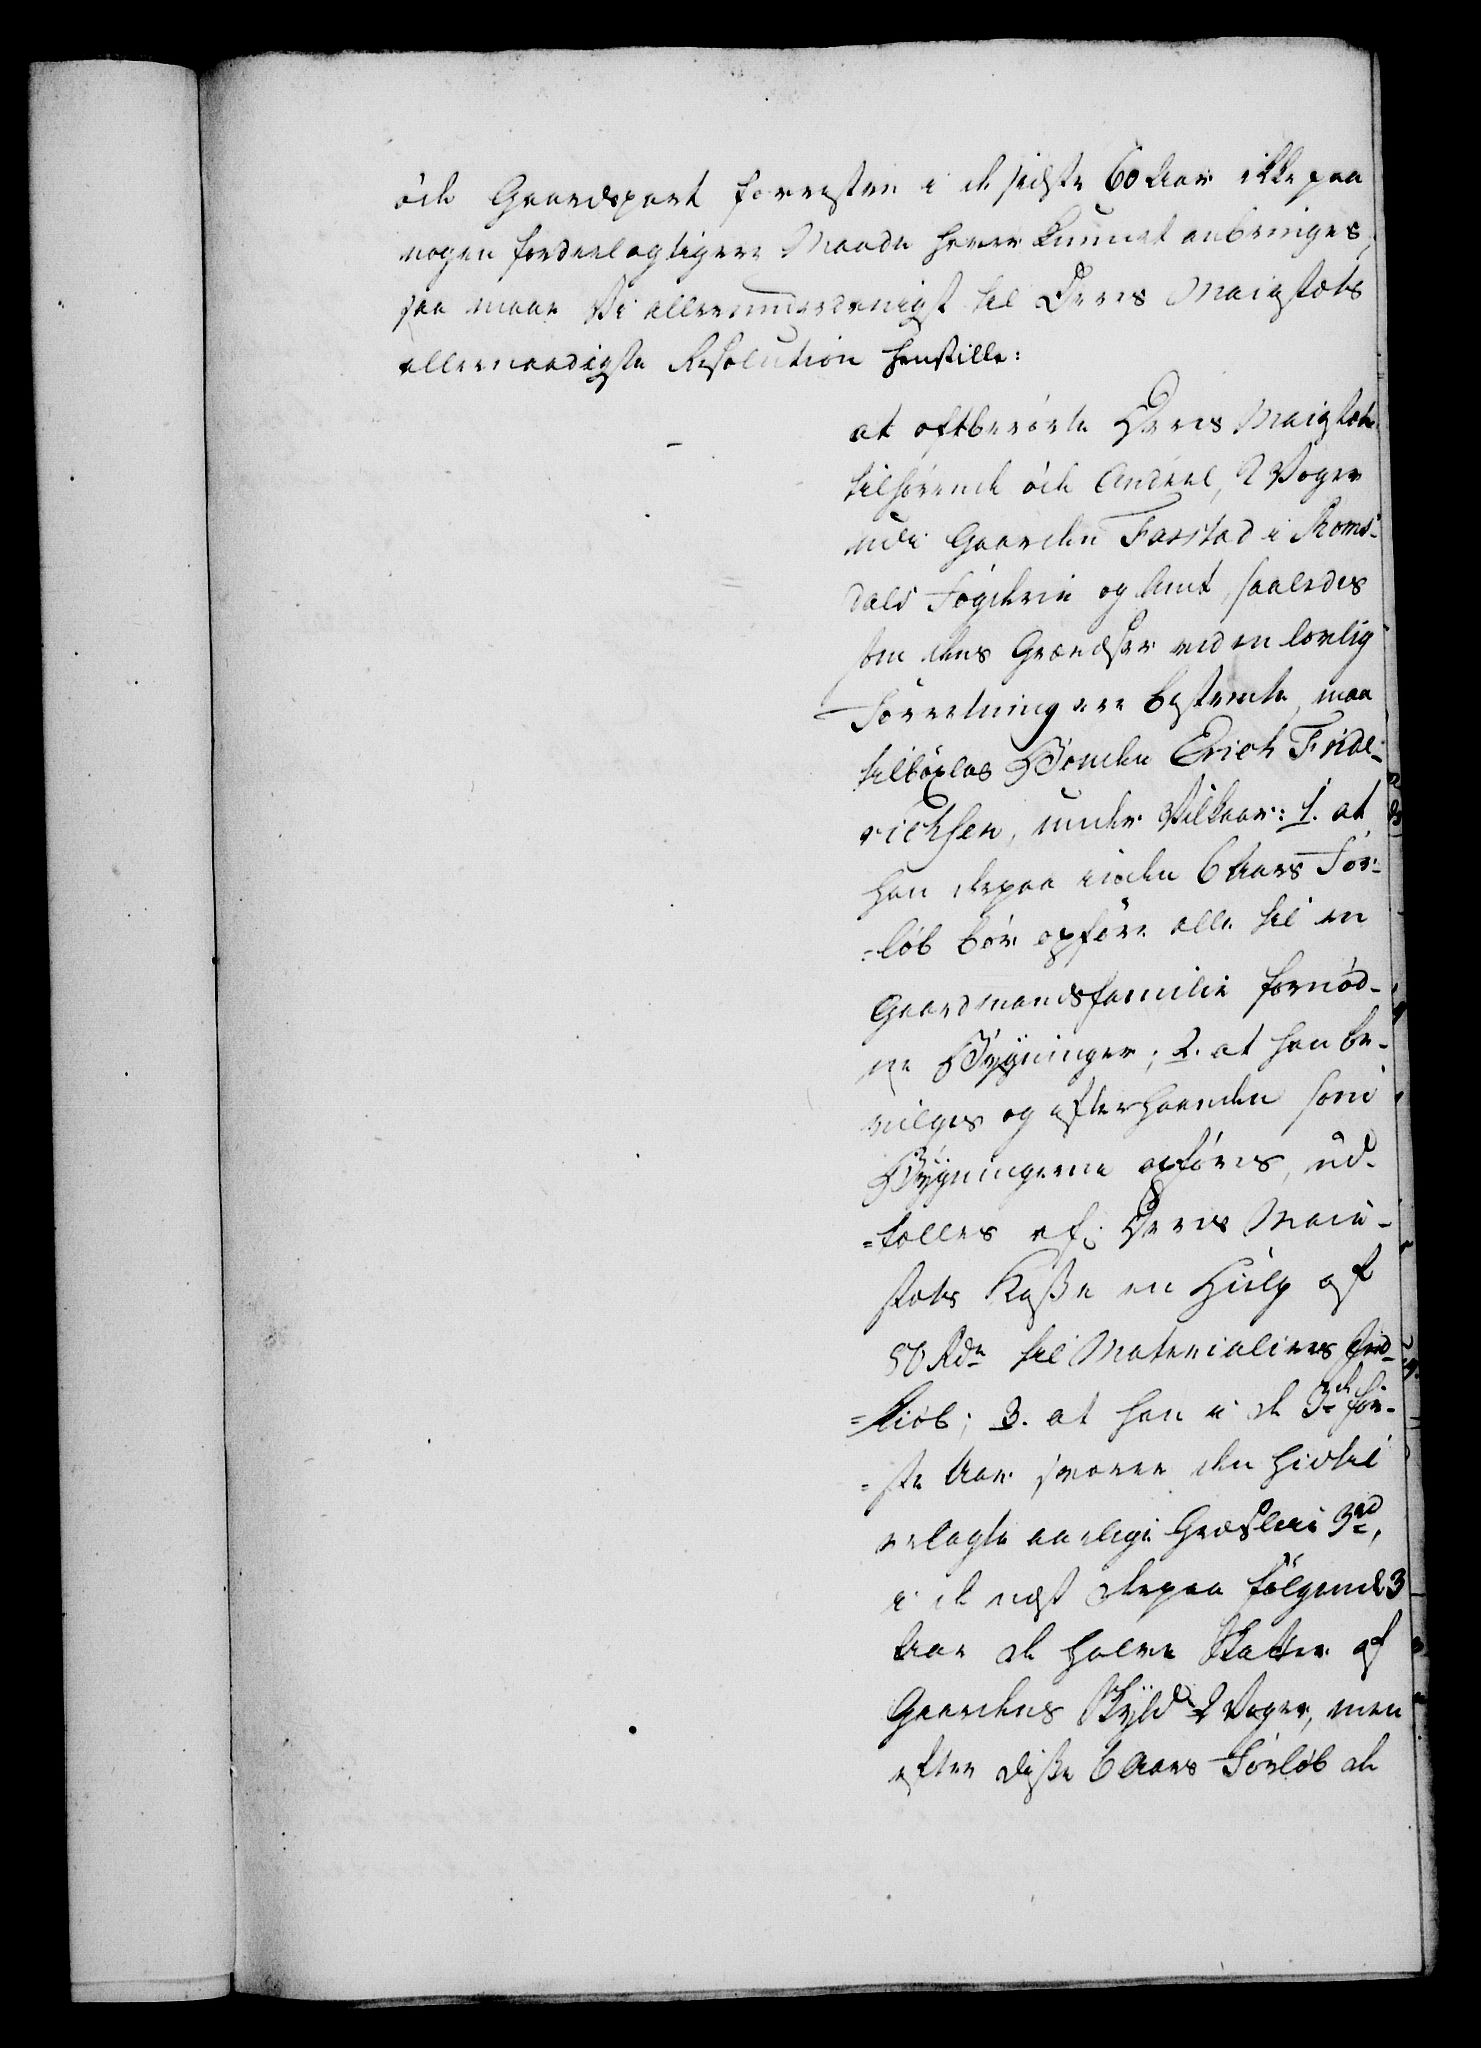 öde Gaardspart foruden i de sidste 60 Aar ikke paa
nogen fordeelagtigere Maade haver kunnet anbringes,
saa maae Vi allerunderdanigst til Deres Maiestæts
allernaadigste Resolution henstille:
at oftberörte Deres Maiestæt
tilhörende öde Andeel, 2 Voger
udi Gaarden Farstad i Roms-
dals Fogderie og Amt, saaledes
som dens Grændser ved en lovlig
Forretning ere bestemte, maa
tilböxles Bonden Erich Fride-
richsen, under Vilkaar: 1. at
han derpaa inden 6 Aars For-
=löb bör opföre alle til en
Gaardmandsfamilie fornöd-
ne Bÿgninger; 2. at han be-
vilges og efterhaanden som
Bÿgningerne opföres, ud-
=tælles af Deres Maie-
stæts Kaße en Hielp af
50 Rdr til Materialiers Ind-
=kiöb; 3. at han i de 3de för-
=ste Aar svarer den hidtil
erlagte aarlige Græsleie 3rd,
i de næst derpaa fölgende 3
Aar de halve Skatter af
Gaardens Skÿld 2 Voger, men
efter diße 6 Aars Forlöb de